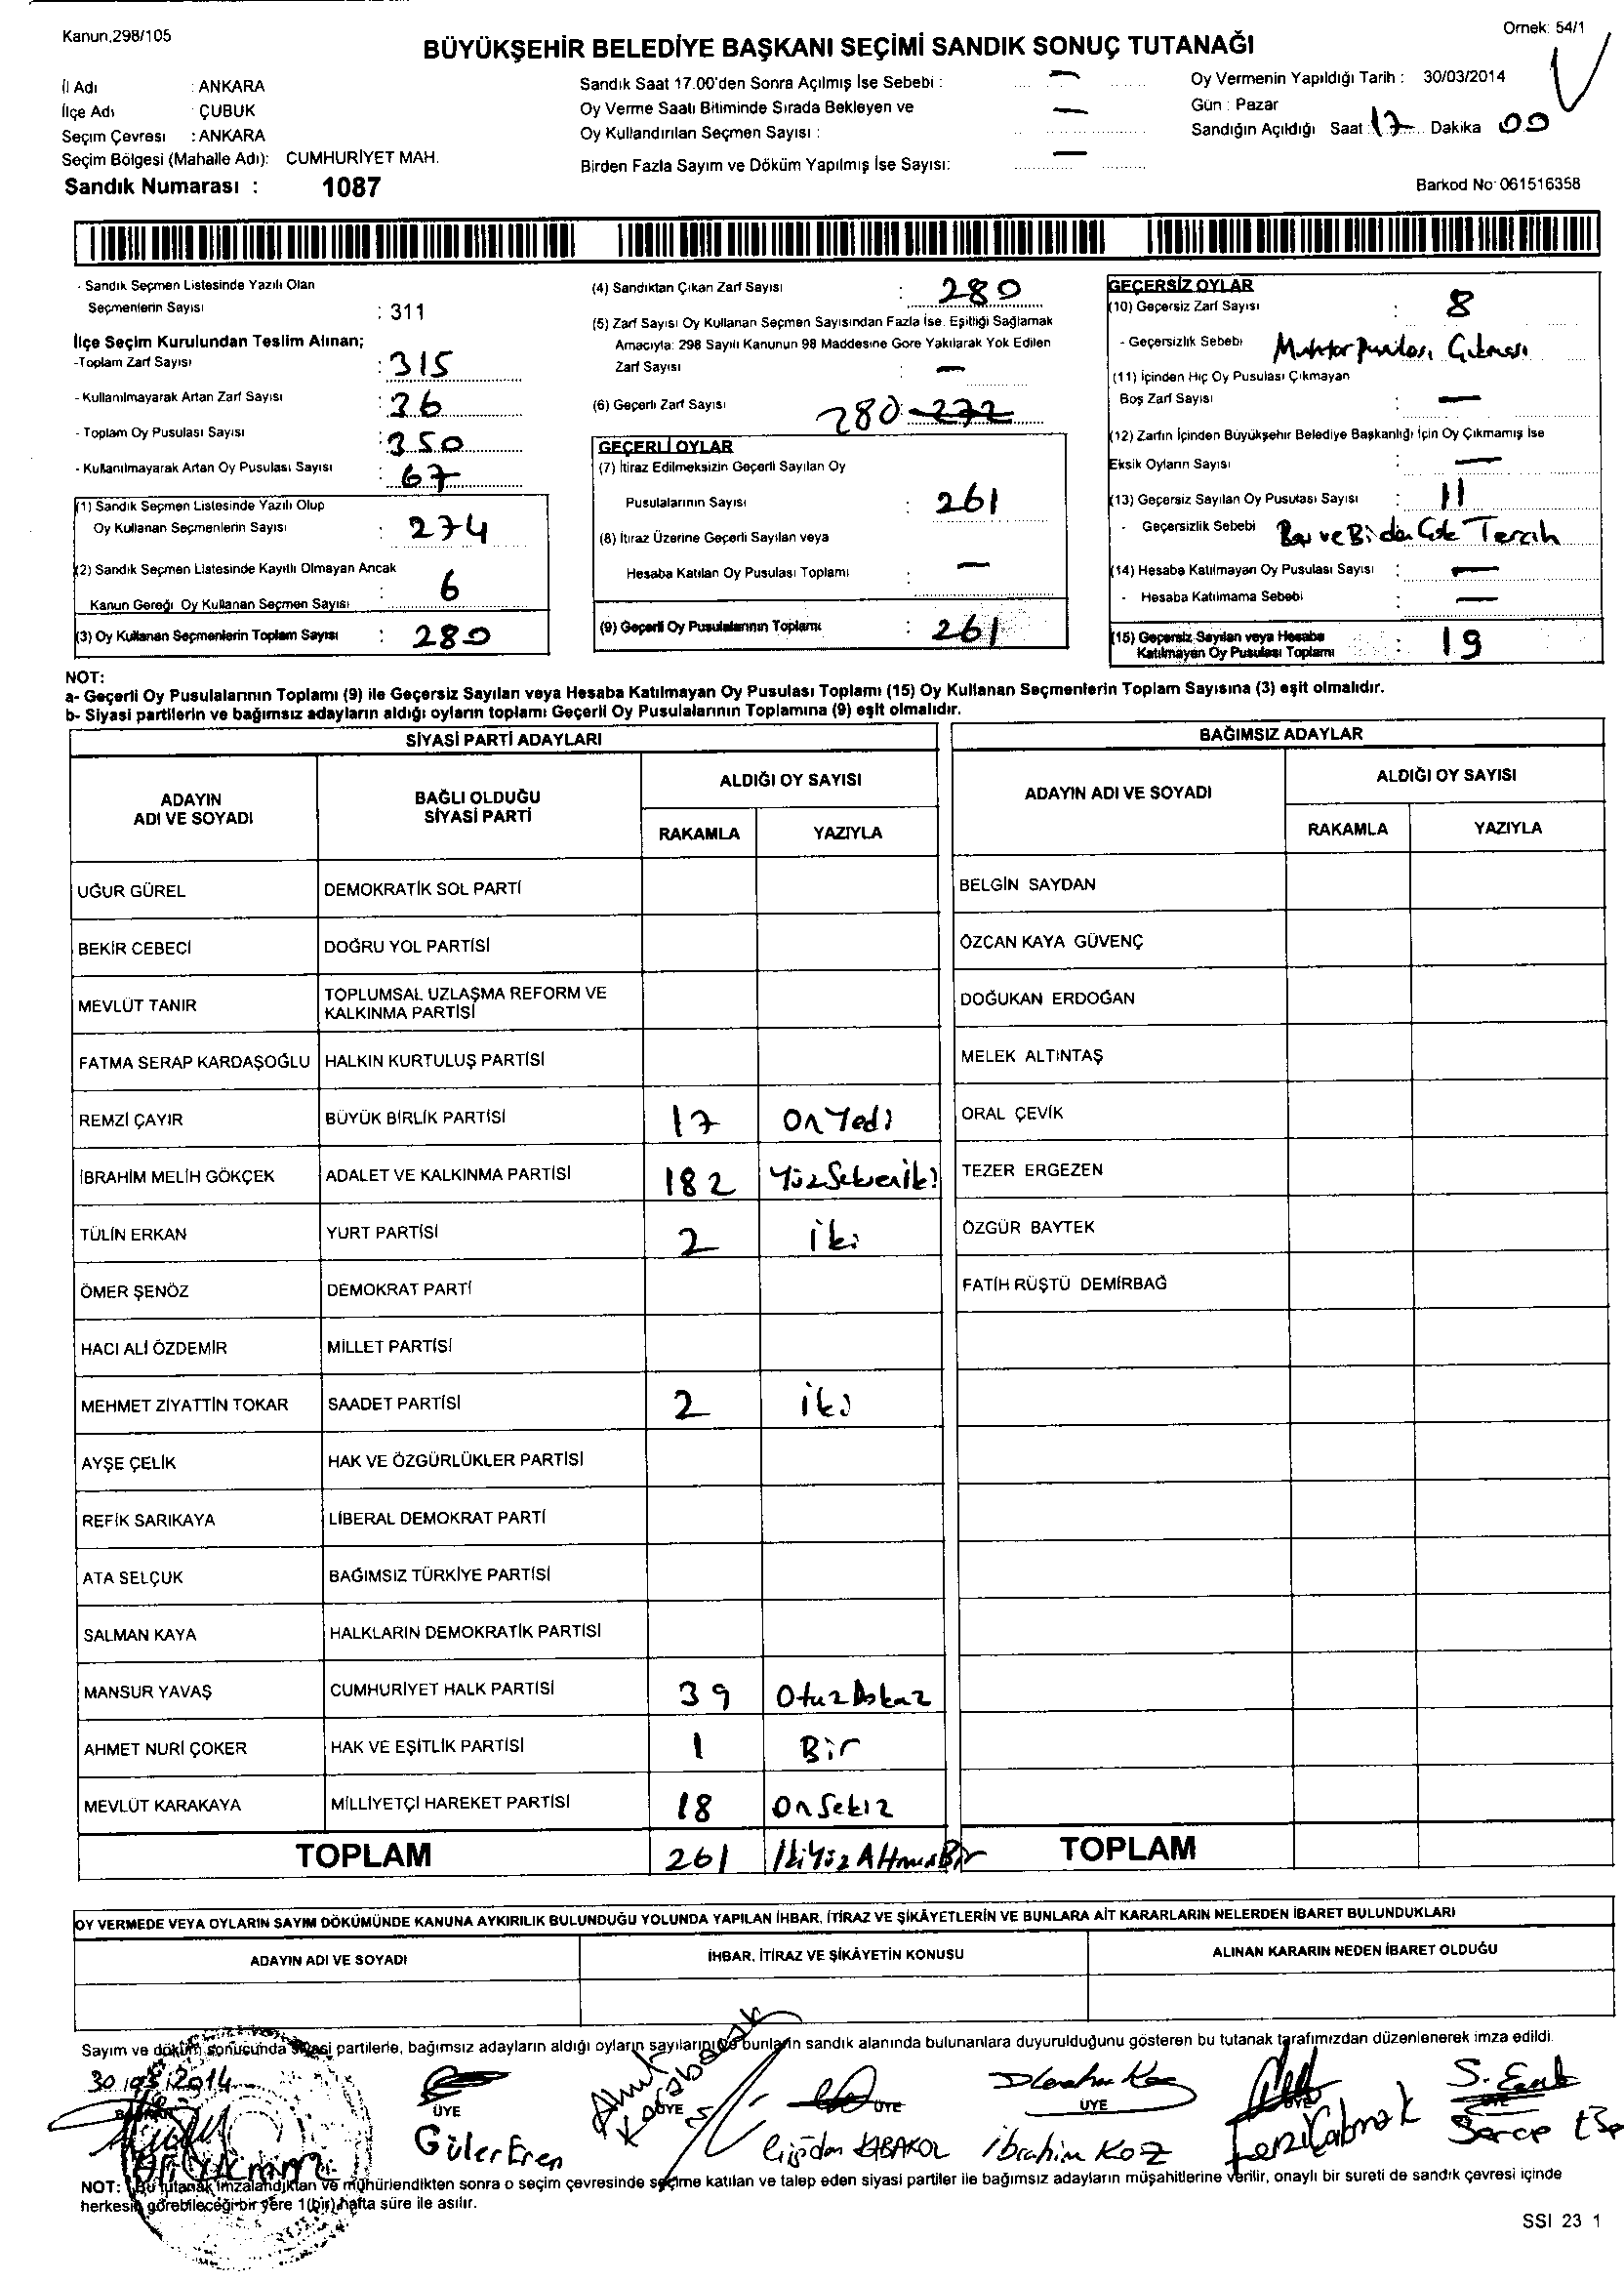 Kanun,298/105
Örnek: 54/1
BÜYÜKŞEHİR BELEDİYE BAŞKANI SEÇİMİ SANDIK SONUÇ TUTANAĞI
İl Adı : ANKARA
İlçe Adı : ÇUBUK
Seçim Çevresi : ANKARA
Seçim Bölgesi (Mahalle Adı): CUMHURİYET MAH.
Sandık Numarası : 1087
Sandık Saat 17.00'den Sonra Açılmış İse Sebebi : —
Oy Verme Saati Bitiminde Sırada Bekleyen ve
Oy Kullandırılan Seçmen Sayısı : —
Birden Fazla Sayım ve Döküm Yapılmış İse Sayısı: —
Oy Vermenin Yapıldığı Tarih : 30/03/2014
Gün : Pazar
Sandığın Açıldığı Saat : 17 Dakika 00
Barkod No: 061516358
- Sandık Seçmen Listesinde Yazılı Olan
Seçmenlerin Sayısı : 311
İlçe Seçim Kurulundan Teslim Alınan;
-Toplam Zarf Sayısı : 315
- Kullanılmayarak Artan Zarf Sayısı : 36
- Toplam Oy Pusulası Sayısı : 350
- Kullanılmayarak Artan Oy Pusulası Sayısı : 67
(1) Sandık Seçmen Listesinde Yazılı Olup
Oy Kullanan Seçmenlerin Sayısı : 274
(2) Sandık Seçmen Listesinde Kayıtlı Olmayan Ancak
Kanun Gereği Oy Kullanan Seçmen Sayısı : 6
(3) Oy Kullanan Seçmenlerin Toplam Sayısı : 280
(4) Sandıktan Çıkan Zarf Sayısı : 280
(5) Zarf Sayısı Oy Kullanan Seçmen Sayısından Fazla İse. Eşitliği Sağlamak
Amacıyla: 298 Sayılı Kanunun 98 Maddesine Göre Yakılarak Yok Edilen
Zarf Sayısı : —
(6) Geçerli Zarf Sayısı 280 272
GEÇERLİ OYLAR
(7) İtiraz Edilmeksizin Geçerli Sayılan Oy
Pusulalarının Sayısı : 261
(8) İtiraz Üzerine Geçerli Sayılan veya
Hesaba Katılan Oy Pusulası Toplamı : —
(9) Geçerli Oy Pusulalarının Toplamı : 261
GEÇERSİZ OYLAR
(10) Geçersiz Zarf Sayısı : 8
- Geçersizlik Sebebi Muhtar Pusulası Çıkması
(11) İçinden Hiç Oy Pusulası Çıkmayan
Boş Zarf Sayısı : —
(12) Zarfın İçinden Büyükşehir Belediye Başkanlığı İçin Oy Çıkmamış İse
Eksik Oyların Sayısı : —
(13) Geçersiz Sayılan Oy Pusulası Sayısı : 11
- Geçersizlik Sebebi Boş ve Birden Çok Tercih
(14) Hesaba Katılmayan Oy Pusulası Sayısı : —
- Hesaba Katılmama Sebebi : —
(15) Geçersiz Sayılan veya Hesaba
Katılmayan Oy Pusulası Toplamı : 19
NOT:
a- Geçerli Oy Pusulalarının Toplamı (9) ile Geçersiz Sayılan veya Hesaba Katılmayan Oy Pusulası Toplamı (15) Oy Kullanan Seçmenlerin Toplam Sayısına (3) eşit olmalıdır.
b- Siyasi partilerin ve bağımsız adayların aldığı oyların toplamı Geçerli Oy Pusulalarının Toplamına (9) eşit olmalıdır.
SİYASİ PARTİ ADAYLARI
ADAYIN ADI VE SOYADI BAĞLI OLDUĞU SİYASİ PARTİ ALDIĞI OY SAYISI
RAKAMLA YAZIYLA
UĞUR GÜREL DEMOKRATİK SOL PARTİ
BEKİR CEBECİ DOĞRU YOL PARTİSİ
MEVLÜT TANIR TOPLUMSAL UZLAŞMA REFORM VE KALKINMA PARTİSİ
FATMA SERAP KARDAŞOĞLU HALKIN KURTULUŞ PARTİSİ
REMZİ ÇAYIR BÜYÜK BİRLİK PARTİSİ 17 On Yedi
İBRAHİM MELİH GÖKÇEK ADALET VE KALKINMA PARTİSİ 182 Yüz Seksen İki
TÜLİN ERKAN YURT PARTİSİ 2 iki
ÖMER ŞENÖZ DEMOKRAT PARTİ
HACI ALİ ÖZDEMİR MİLLET PARTİSİ
MEHMET ZİYATTİN TOKAR SAADET PARTİSİ 2 iki
AYŞE ÇELİK HAK VE ÖZGÜRLÜKLER PARTİSİ
REFİK SARIKAYA LİBERAL DEMOKRAT PARTİ
ATA SELÇUK BAĞIMSIZ TÜRKİYE PARTİSİ
SALMAN KAYA HALKLARIN DEMOKRATİK PARTİSİ
MANSUR YAVAŞ CUMHURİYET HALK PARTİSİ 39 Otuz Dokuz
AHMET NURİ ÇOKER HAK VE EŞİTLİK PARTİSİ 1 Bir
MEVLÜT KARAKAYA MİLLİYETÇİ HAREKET PARTİSİ 18 On Sekiz
TOPLAM 261 İki Yüz Altmış Bir
BAĞIMSIZ ADAYLAR
ADAYIN ADI VE SOYADI ALDIĞI OY SAYISI
RAKAMLA YAZIYLA
BELGİN SAYDAN
ÖZCAN KAYA GÜVENÇ
DOĞUKAN ERDOĞAN
MELEK ALTINTAŞ
ORAL ÇEVİK
TEZER ERGEZEN
ÖZGÜR BAYTEK
FATİH RÜŞTÜ DEMİRBAĞ
TOPLAM
OY VERMEDE VEYA OYLARIN SAYIM DÖKÜMÜNDE KANUNA AYKIRILIK BULUNDUĞU YOLUNDA YAPILAN İHBAR, İTİRAZ VE ŞİKÂYETLERİN VE BUNLARA AİT KARARLARIN NELERDEN İBARET BULUNDUKLARI
ADAYIN ADI VE SOYADI İHBAR, İTİRAZ VE ŞİKÂYETİN KONUSU ALINAN KARARIN NEDEN İBARET OLDUĞU
Sayım ve döküm sonucunda siyasi partilerle, bağımsız adayların aldığı oyların sayılarını ve bunların sandık alanında bulunanlara duyurulduğunu gösteren bu tutanak tarafımızdan düzenlenerek imza edildi.
30 /03/2014
ÜYE ÜYE ÜYE ÜYE
Güler Eren
Ahmet Karabacak
Çiğdem KABAKOL
İbrahim Koz
S. Esat
NOT: Bu tutanak imzalandıktan ve mühürlendikten sonra o seçim çevresinde seçime katılan ve talep eden siyasi partiler ile bağımsız adayların müşahitlerine verilir, onaylı bir sureti de sandık çevresi içinde
herkesin görebileceği bir yere 1(bir) hafta süre ile asılır.
SSI 23 1